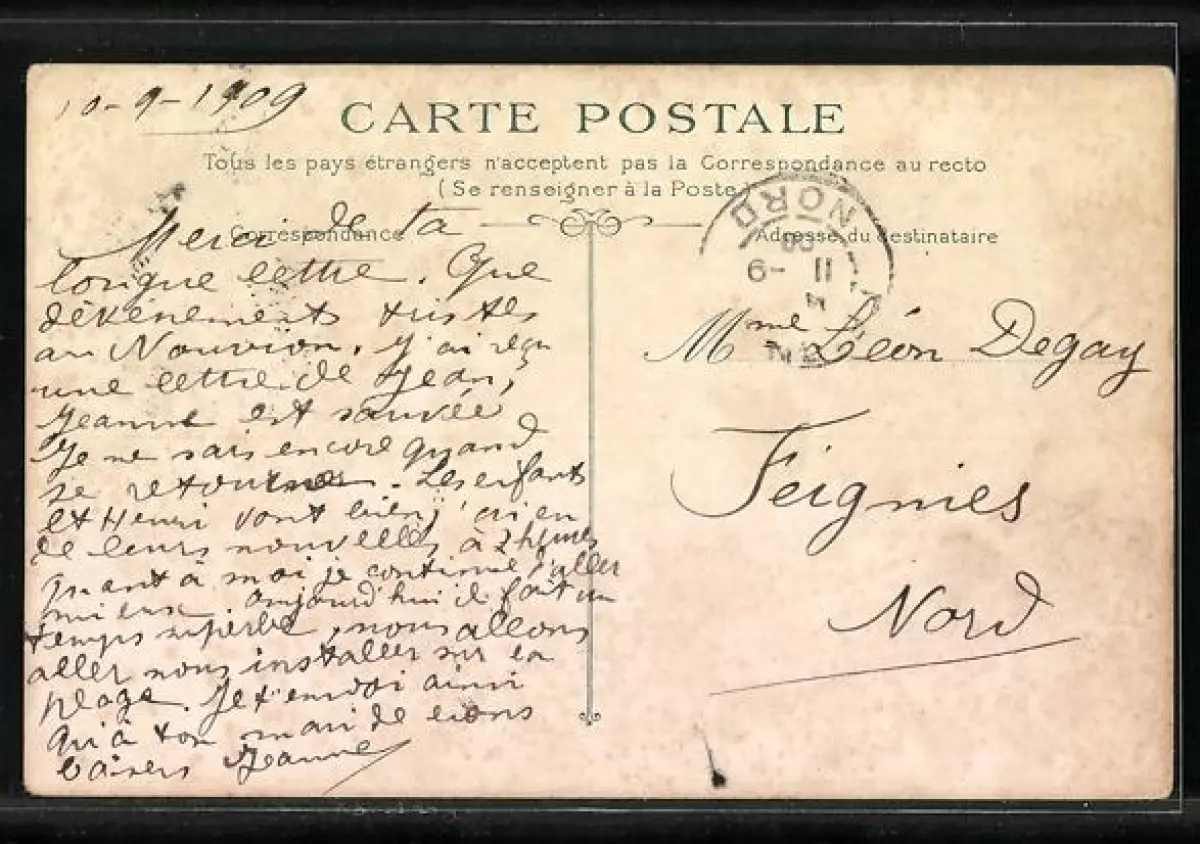 10-9-1909
CARTE POSTALE
Tous les pays étrangers n'acceptent pas la Correspondance au recto
(Se renseigner à la Poste)
Correspondance
Adresse du destinataire
NORD
11 -9
09
Merci de ta
longue lettre. Que
d'événements tristes
au Nouvion. J'ai reçu
une lettre de Jean,
Jeanne est sauvée
Je ne sais encore quand
je retourne. Les enfants
et Henri vont bien j'ai eu
de leurs nouvelles à 2 heures
quant à moi je continue d'aller
mieux. Aujourd'hui il fait un
temps superbe, nous allons
aller nous installer sur la
plage. Je t'envoi ainsi
qu'à ton mari de bons
baisers Jeanne
Mme Léon Degay
Feignies
Nord